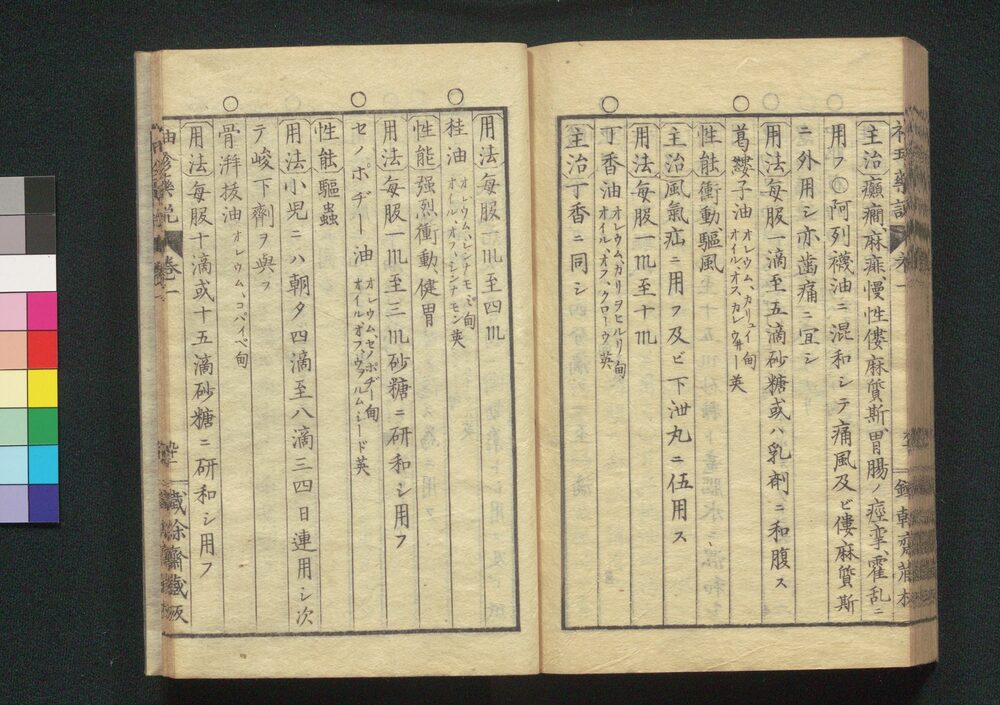 主治癲癇、麻痱、慢性僂麻質斯、胃腸ノ痙攣、霍乱ニ
用フ○阿列襪油ニ混和シテ痛風及ビ僂麻質斯
ニ外用シ亦齒痛ニ宜シ
用法每服一滴至五滴砂糖或ハ乳剤ニ和服ス
葛縷子油 オレウム、カリュイ甸 オイルオスカレウ井ー英
性能衝動驅風
主治風氣疝ニ用フ及ビ下泄丸ニ伍用ス
用法每服一㎖至十㎖
丁香油 オレウム、カリヲヒルリ甸、オイル、オフ、クローウ英
主治丁香ニ同シ
用法每服一㎖至四㎖
桂油 オレウム、シンナモミ甸 オイル、オフ、シンナモン英
性能强烈衝動、健胃
用法每服一㎖至三㎖砂糖ニ研和シ用フ
セノポヂー油 オレウムセノポヂー甸 オイルオフウヲルムシード英
性能驅蟲
用法小児ニハ朝夕四滴至八滴三四日連用シ次
テ峻下劑ヲ與フ
骨湃拔油 オレウム、コパイベ甸
用法每服十滴或十五滴砂糖ニ研和シ用フ
卷一